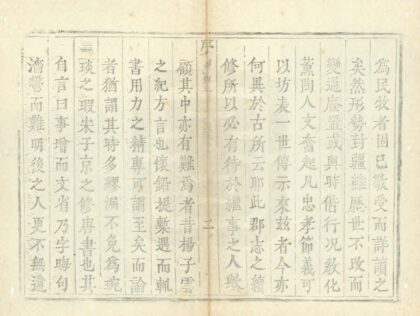 為民牧者固已敬受而詳讀之
矣然形勢封疆雖歷世不改而
變通廢置或與時偕行況教化
薰陶人文奮起凡忠孝節義可
以坊表一世傳示來茲者今亦
何異於古所云耶此郡志之續
修所以必有待於繼事之人歟
序
二
顧其中亦有難焉者昔楊子雲
之紀方言也懷鉛提槧遇而輒
書用力之精專可謂至矣而論
者猶謂其時多繆漏不免為琬
琰之瑕朱子京之修唐書也其
自言曰事增而文省乃字晦句
澁鬱而難明後之人更不無遺